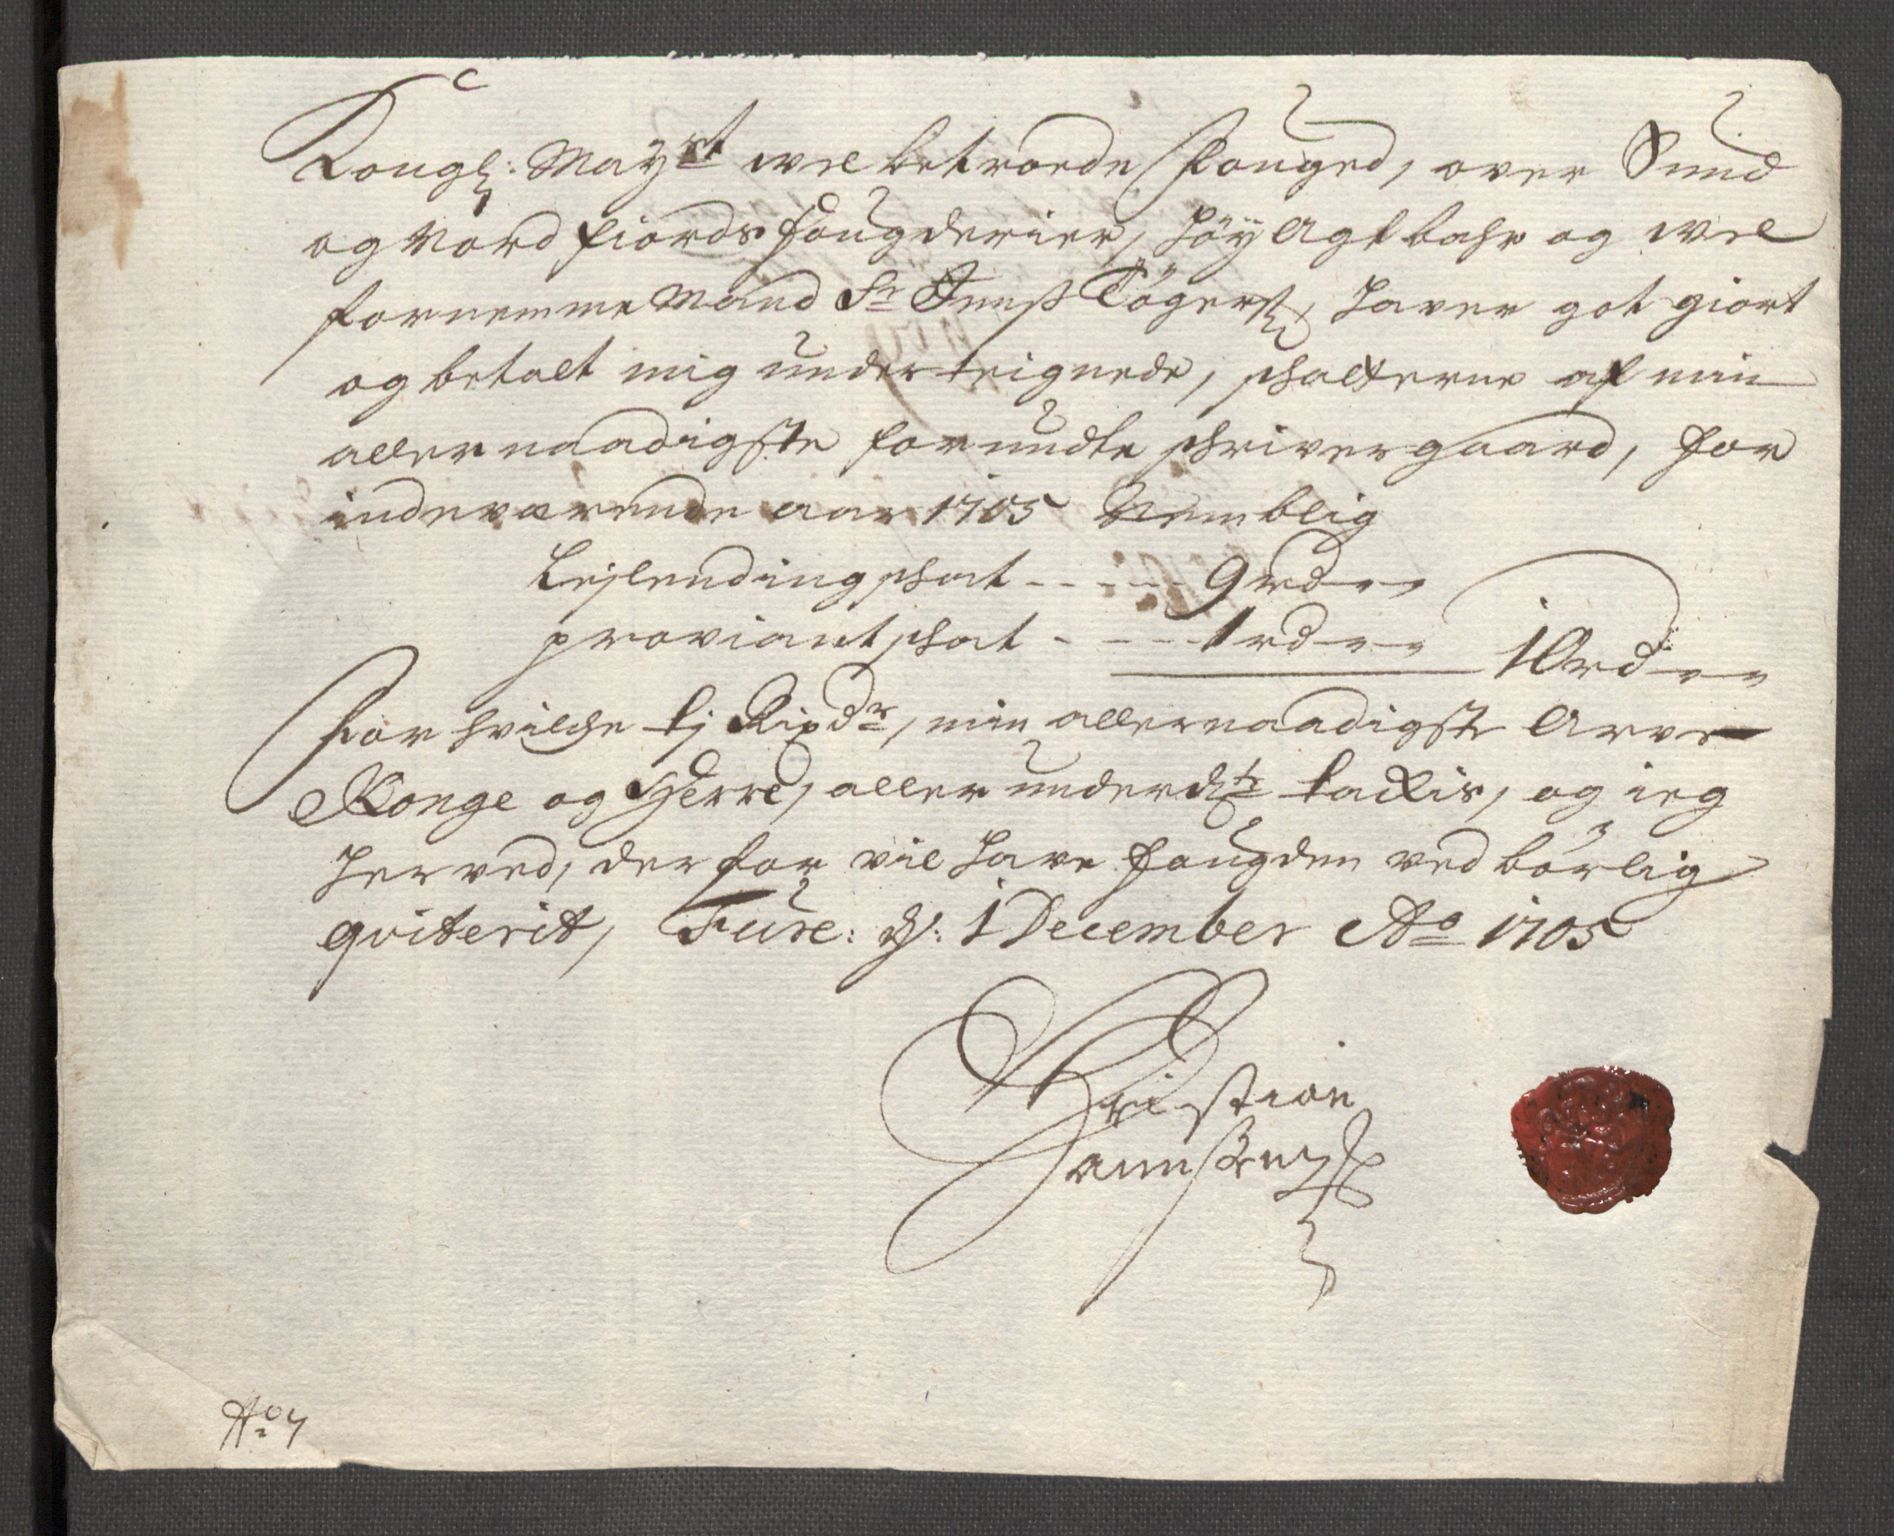 Kongl: Mayst wel betroede Fouged, over Sund
og Nord fiords fougderier, Höÿ Agtbahr og wel
fornemme Mand Sr Jens Tögers, haver got giort
og betalt mig underteignede, skatterne af min
allernaadigste forundte skrivergaard, for
indeværende aar 1705 Nemblig
Leylendingskat - - - - - 9 rd - "
proviantskat - - - - 1 rd - " 10 rd - "
For hvilke tj Rixdr, min allernaadigste Arve
Konge og Herre, aller underdte tackis, og ieg
herved, derfor vil have fougden ved börlig
qviterit, Fure: d: 1 December Ao 1705
Christian